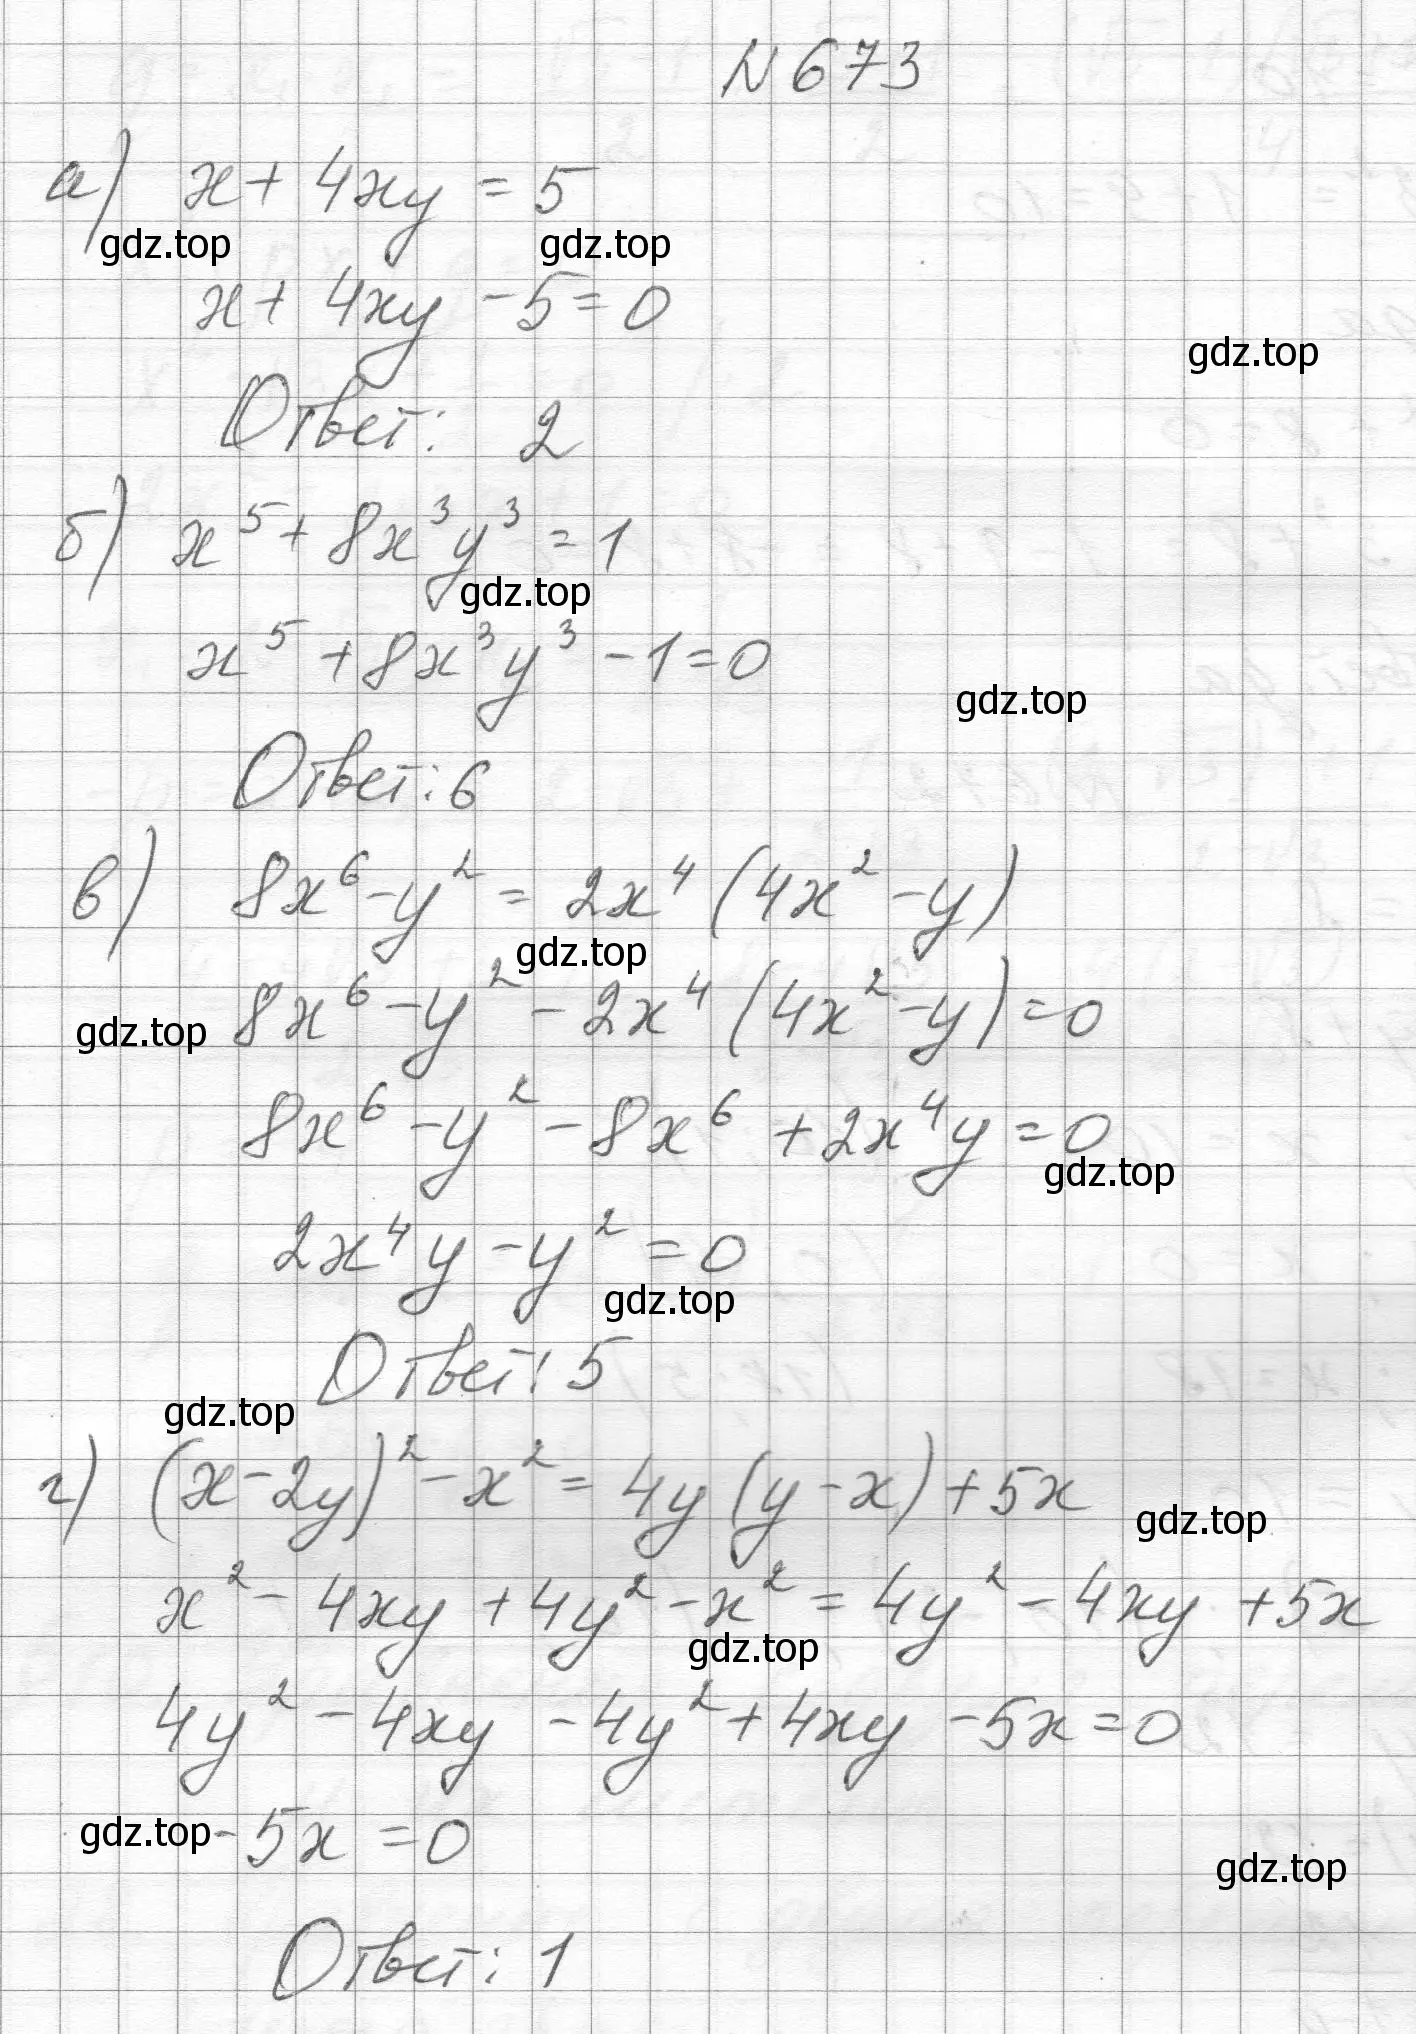 N 673
а) x + 4xy = 5
gdz.top gdz.top
x + 4xy - 5 = 0
gdz.top
Ответ: 2
б) x⁵ + 8x³y³ = 1
gdz.top
x⁵ + 8x³y³ - 1 = 0
gdz.top
Ответ: 6
в) 8x⁶ - y² = 2x⁴ (4x² - y)
gdz.top
8x⁶ - y² - 2x⁴ (4x² - y) = 0
gdz.top
8x⁶ - y² - 8x⁶ + 2x⁴y = 0
gdz.top
2x⁴y - y² = 0
gdz.top
Ответ: 5
gdz.top
г) (x - 2y)² - x² = 4y (y - x) + 5x
gdz.top
x² - 4xy + 4y² - x² = 4y² - 4xy + 5x
gdz.top
4y² - 4xy - 4y² + 4xy - 5x = 0
gdz.top
-5x = 0
gdz.top
Ответ: 1